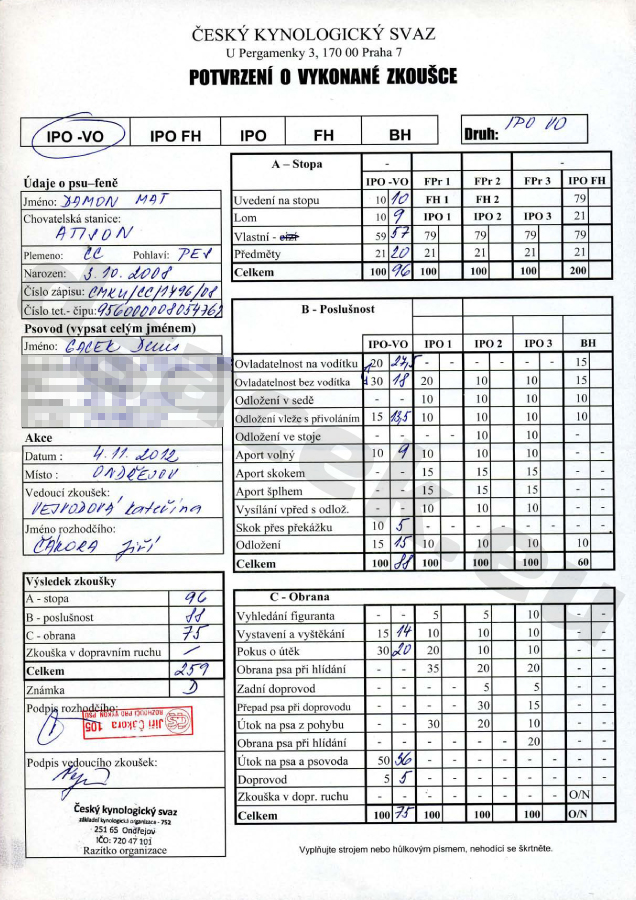 ČESKÝ KYNOLOGICKÝ SVAZ
U Pergamenky 3, 170 00 Praha 7
POTVRZENÍ O VYKONANÉ ZKOUŠCE
IPO -VO IPO FH IPO FH BH Druh: IPO VO
Údaje o psu–feně
Jméno: DAMON MAT
Chovatelská stanice:
ATISON
Plemeno: CC Pohlaví: PES
Narozen: 3.10.2008
Číslo zápisu: CMKU/CC/1496/08
Číslo tet.- čipu: 956000008054762
Psovod (vypsat celým jménem)
Jméno: GACEK Denis
Akce
Datum : 4.11.2012
Místo : ONDŘEJOV
Vedoucí zkoušek:
VEJVODOVÁ Kateřina
Jméno rozhodčího:
ČAKORA Jiří
Výsledek zkoušky
A - stopa 96
B - poslušnost 88
C - obrana 75
Zkouška v dopravním ruchu /
Celkem 259
Známka D
Podpis rozhodčího:
Jiří Čakora 105
ROZHODČÍ PRO VÝKON PSŮ
Podpis vedoucího zkoušek:
Český kynologický svaz
základní kynologická organizace - 752
251 65 Ondřejov
IČO: 720 47 101
Razítko organizace
A – Stopa - -
IPO -VO FPr 1 FPr 2 FPr 3 IPO FH
Uvedení na stopu 10 10 FH 1 FH 2 79
Lom 10 9 IPO 1 IPO 2 IPO 3 21
Vlastní - cizí 59 57 79 79 79 79
Předměty 21 20 21 21 21 21
Celkem 100 96 100 100 100 200
B - Poslušnost
IPO-VO IPO 1 IPO 2 IPO 3 BH
Ovladatelnost na vodítku 20 27,5 - - - - - - 15
Ovladatelnost bez vodítka 30 18 20 10 10 15
Odložení v sedě - - 10 10 10 10
Odložení vleže s přivoláním 15 13,5 10 10 10 10
Odložení ve stoje - - - - 10 10 - -
Aport volný 10 9 10 10 10 - -
Aport skokem - - 15 15 15 - -
Aport šplhem - - 15 15 15 - -
Vysílání vpřed s odlož. - - 10 10 10 - -
Skok přes překážku 10 5 - - - - - - - -
Odložení 15 15 10 10 10 10
Celkem 100 88 100 100 100 60
C - Obrana
Vyhledání figuranta - - 5 5 10
Vystavení a vyštěkání 15 14 10 10 10
Pokus o útěk 30 20 20 10 10
Obrana psa při hlídání - - 35 20 20
Zadní doprovod - - - - 5 5
Přepad psa při doprovodu - - - - 30 15
Útok na psa z pohybu - - 30 20 10
Obrana psa při hlídání - - - - - - 20
Útok na psa a psovoda 50 36 - - - - - -
Doprovod 5 5 - - - - - -
Zkouška v dopr. ruchu - - - - - - - - O/N
Celkem 100 75 100 100 100 O/N
Vyplňujte strojem nebo hůlkovým písmem, nehodící se škrtněte.